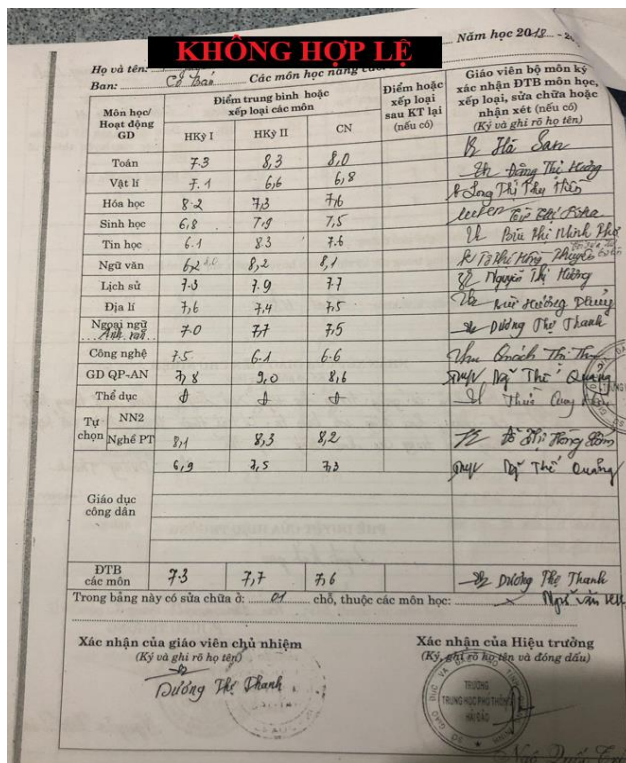 KHÔNG HỢP LỆ
Năm học 2018 - 20
Họ và tên:
Ban: Cơ Bản Các môn học nâng cao:
Môn học/ Hoạt động GD
Điểm trung bình hoặc xếp loại các môn
HKỳ I HKỳ II CN
Điểm hoặc xếp loại sau KT lại (nếu có)
Giáo viên bộ môn ký xác nhận ĐTB môn học, xếp loại, sửa chữa hoặc nhận xét (nếu có)
(Ký và ghi rõ họ tên)
Toán 7.3 8,3 8,0 Hà San
Vật lí 7.1 6,6 6,8 Đặng Thị Hương
Hóa học 8.2 7,3 7,6
Sinh học 6,8 7,9 7,5
Tin học 6.1 8.3 7.6 Bùi Thị Minh Thơ
Ngữ văn 6,2 8,0 8,2 8,1
Lịch sử 7.3 7.9 7.7 Nguyễn Thị Hương
Địa lí 7,6 7,4 7,5
Ngoại ngữ Anh văn 7.0 7,7 7,5 Dương Thị Thanh
Công nghệ 7.5 6.1 6.6 Quách Thị
GD QP-AN 7,8 9,0 8,6 Ngô Thế Quảng
Thể dục Đ Đ Đ
Tự chọn
NN2
Nghề PT 8,1 8,3 8,2
6,9 7,5 7,3 Ngô Thế Quảng
Giáo dục công dân
ĐTB các môn 7.3 7,7 7,6 Dương Thị Thanh
Trong bảng này có sửa chữa ở: 01 chỗ, thuộc các môn học: Ngữ văn
Xác nhận của giáo viên chủ nhiệm
(Ký và ghi rõ họ tên)
Dương Thị Thanh
Xác nhận của Hiệu trưởng
(Ký, ghi rõ họ tên và đóng dấu)
TRƯỜNG
TRUNG HỌC PHỔ THÔNG
HẢI ĐẢO